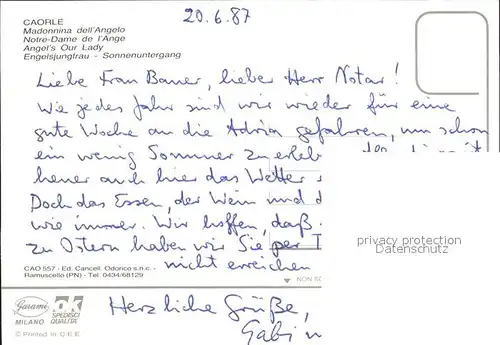 CAORLE
Madonnina dell'Angelo
Notre-Dame de l'Ange
Angel's Our Lady
Engelsjungfrau - Sonnenuntergang
20.6.87
Liebe Frau Bauer, lieber Herr Notar!
Wie jedes Jahr sind wir wieder für eine
gute Woche an die Adria gefahren, um schon
ein wenig Sommer zu erleb
auch hier das Wetter
Doch das Essen, der Wein und d
wie immer. Wir hoffen, daß
zu Ostern haben wir Sie per T
nicht erreichen
privacy protection
Datenschutz
CAO 557 - Ed. Cancell. Odorico s.n.c. -
Ramuscello (PN) - Tel. 0434/68129
NON SC
Herzliche Grüße,
Gabi
Garami
MILANO
OK
SPEDISCI
QUALITA'
© Printed in O.E.E.